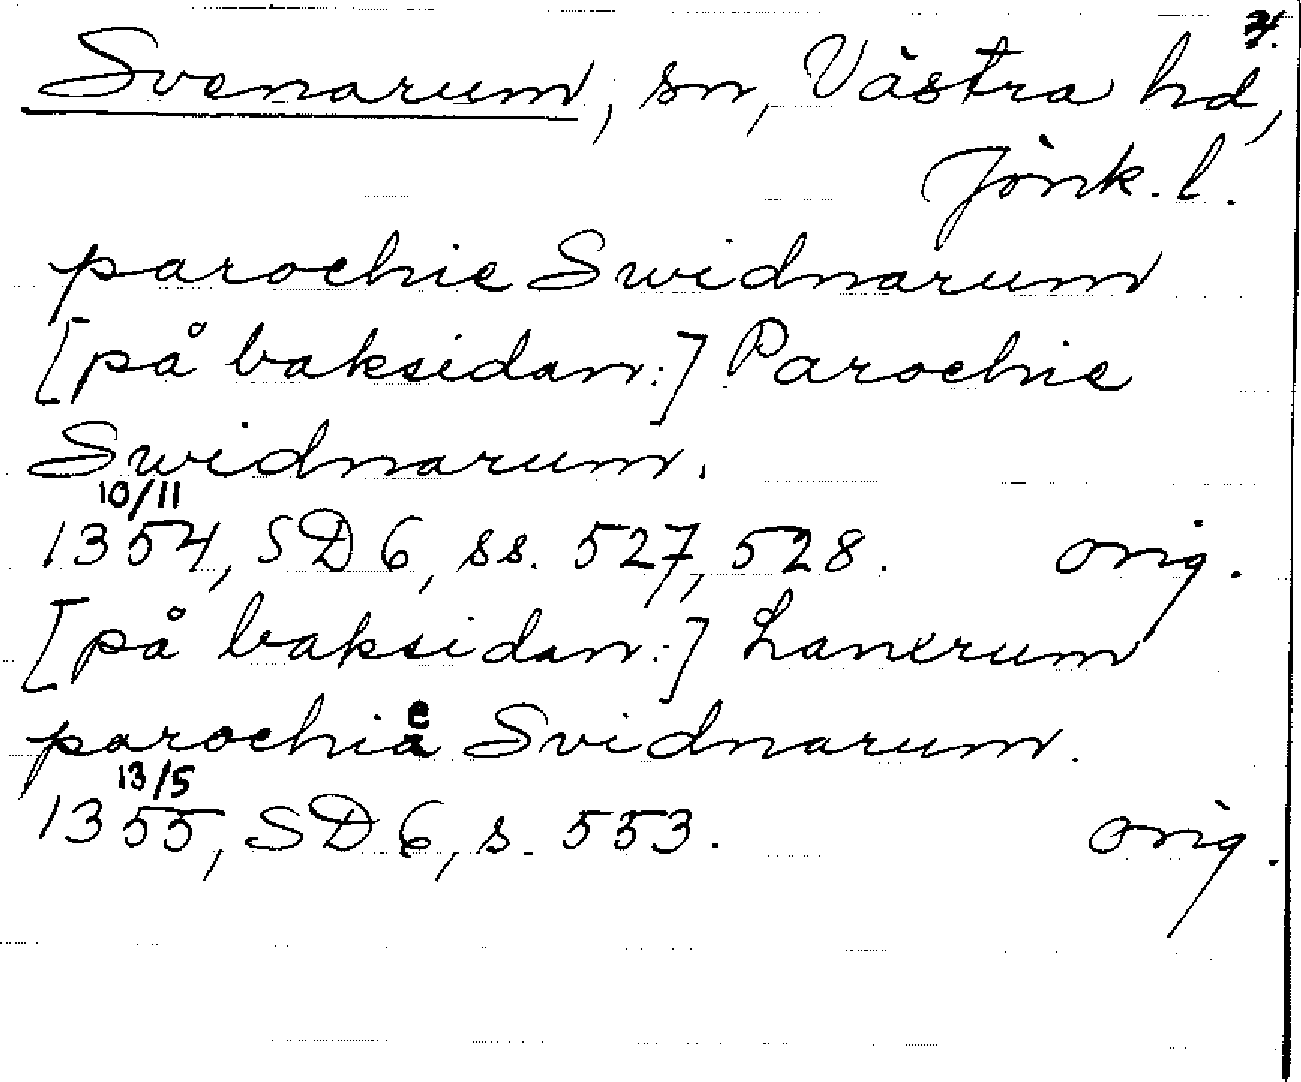 4.
Svenarum, sn, Västra hd,
Jönk. l.
parochie Swidnarum
[på baksidan:] Parochie
Swidnarum.
10/11
1354, SD 6, ss. 527, 528. orig.
[på baksidan:] Lanerum
parochie Svidnarum.
13/5
1355, SD 6, s. 553. orig.